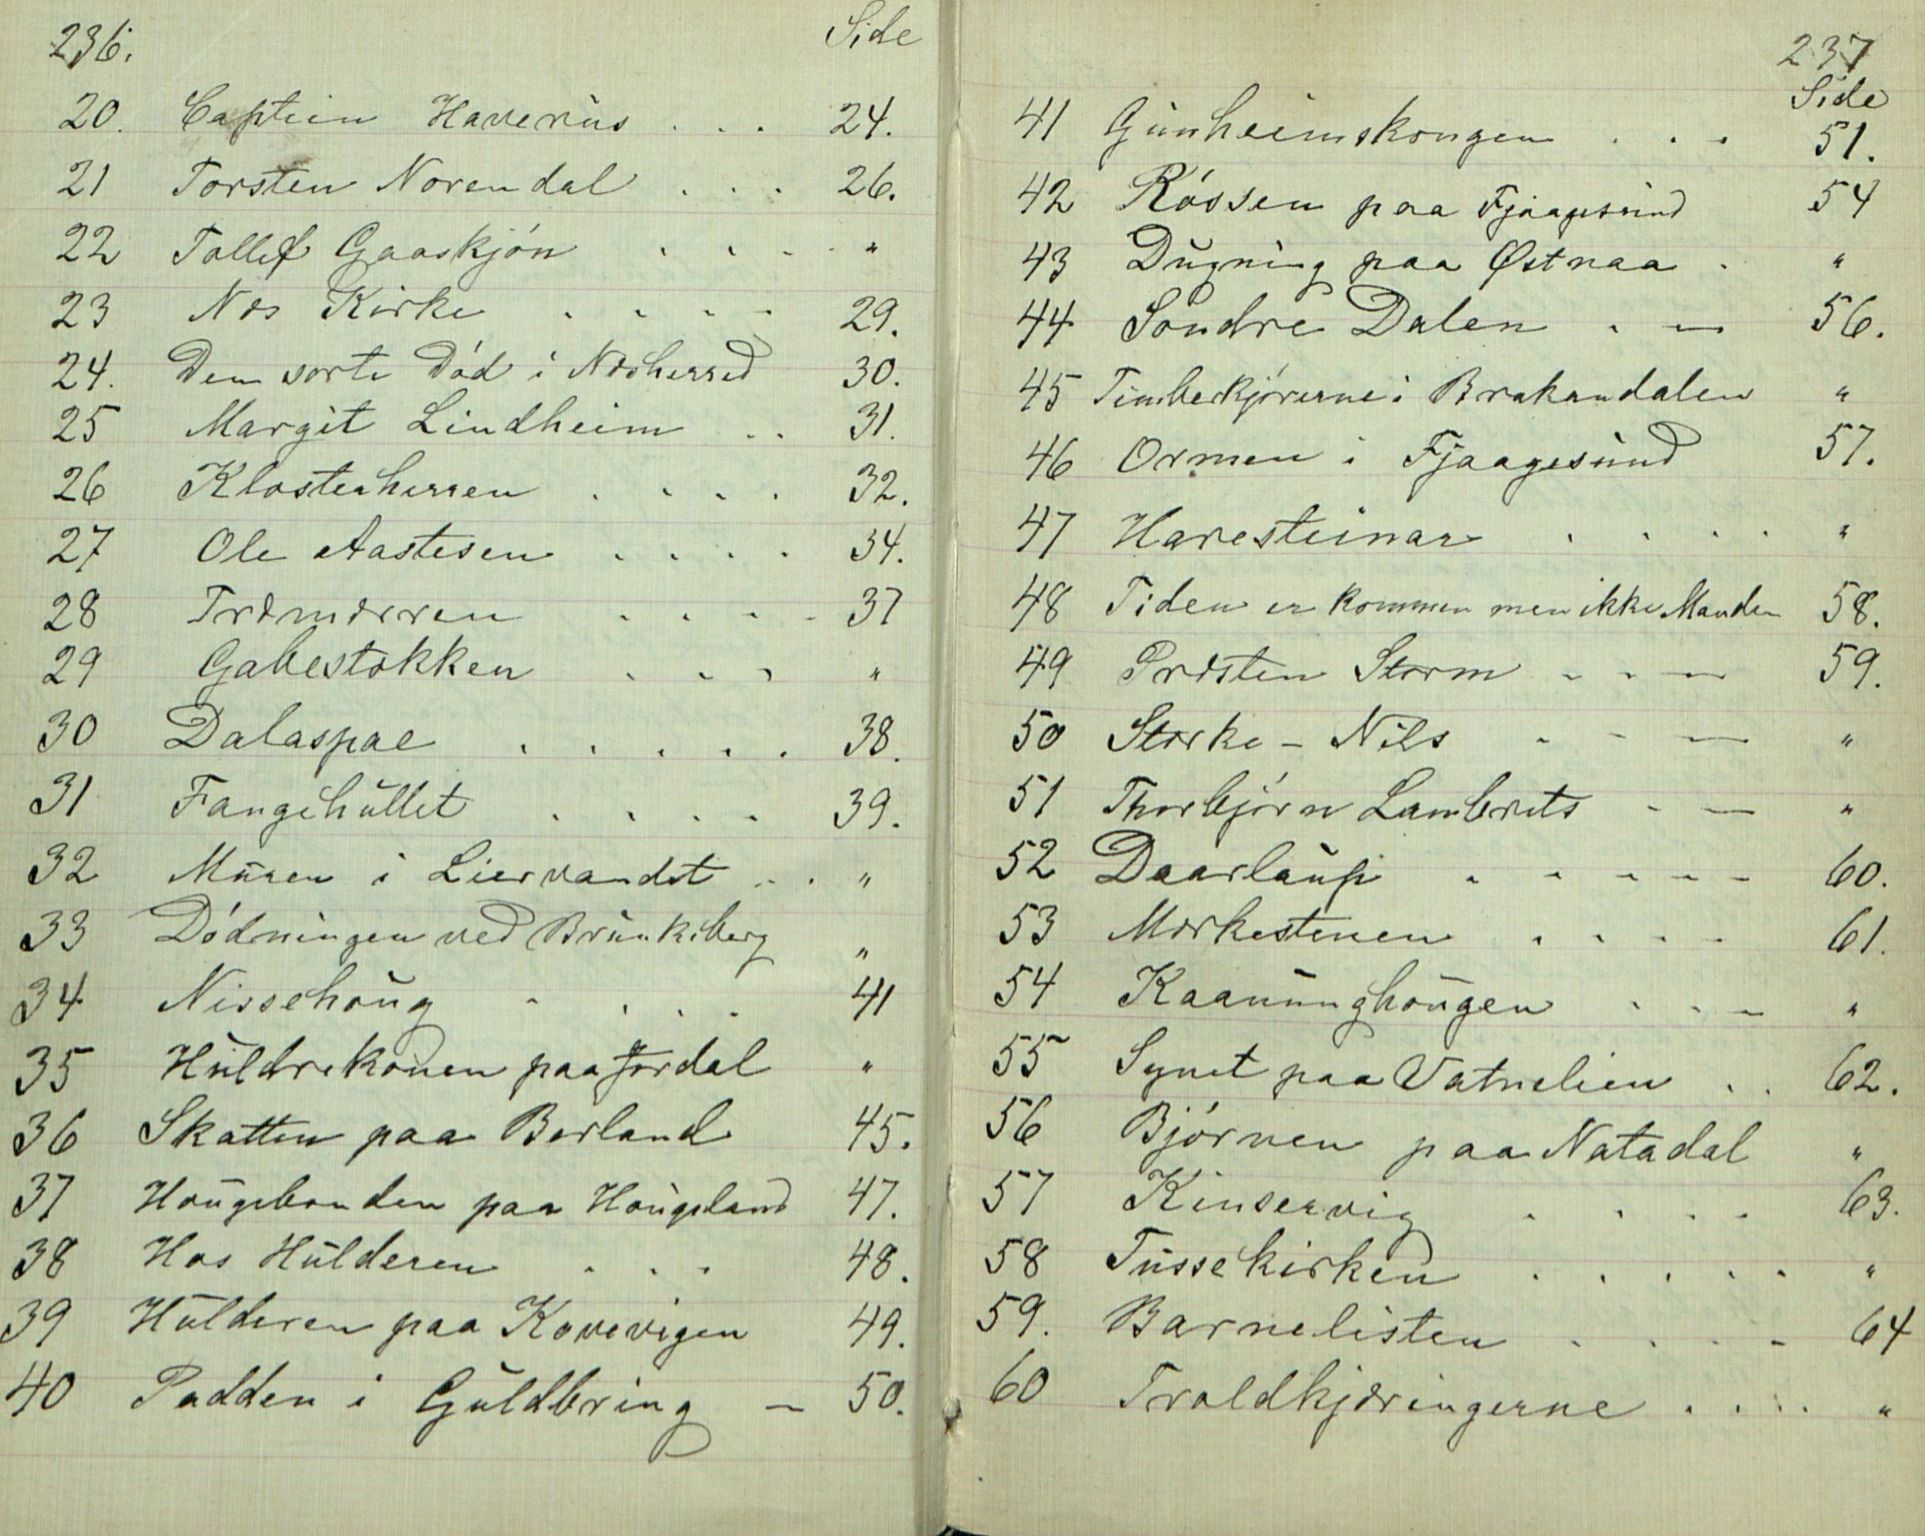 236.
Side
20. Captein Haverüs . . . 24.
21 Torsten Norendal . . . 26.
22 Tollef Gaaskjón . . . . "
23 Næs Kirke . . . . 29.
24. Den sorte Død i Næsherred 30.
25 Margit Lindheim . . 31.
26 Klosterherren . . . . 32.
27 Ole Aastesen . . . . 34.
28 Træmærren . . . . 37
29 Gabestokken . . . "
30 Dalaspae . . . . . 38.
31 Fangehüllet . . . . 39.
32 Müren i Liervandet . . "
33 Dódningen ved Brünkeberg "
34 Nissehoüg . . . . 41
35 Hüldrekonen paa Jordal "
36 Skatten paa Berland 45.
37 Hoügebonden paa Hoügeland 47.
38 Hos Hülderen . . . 48.
39 Hülderen paa Kovevigen 49.
40 Padden i Güldbring — 50.
237
Side
41 Günheimskongen . . . 51.
42 Róssen paa Fjaagesünd 54
43 Dügning paa Østnaa . "
44 Sóndre Dalen . — 56.
45 Timberkjórerne i Brakandalen "
46 Ormen i Fjaagesünd 57.
47 Haresteinar . . . . "
48 Tiden er kommen men ikke Manden 58.
49 Præsten Storm - - — 59.
50 Stærke - Nils - - — "
51 Thorbjórn Lambrets - — "
52 Daarlaüp - - - - - 60.
53 Mærkestenen . . . . 61.
54 Kaanünghoügen . . . "
55 Synet paa Vatnelien . . 62.
56 Bjórnen paa Natadal "
57 Kinservig . . . . 63.
58 Tüssekirken . . . . . "
59. Barnelisten . . . . 64
60 Troldkjæringerne . . . . "